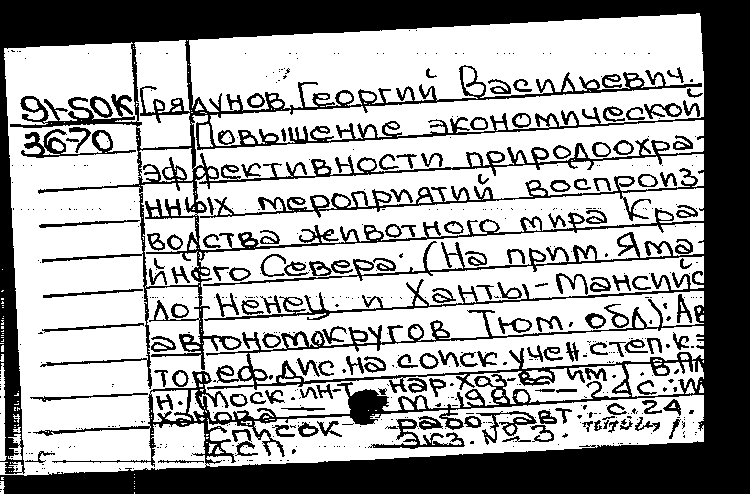 91-5ОК Грядунов, Георгий Васильевич.
3670 Повышение экономической
эффективности природоохра-
нных мероприятий воспроиз-
водства животного мира Кра-
йнего Севера: (На прим. Яма-
ло-Ненец. и Ханты-Мансийс
автономокругов Тюм. обл.): Ав
тореф. дис. на соиск. учен. степ. к. э.
н. / Моск. ин-т нар. хоз-ва им. Г. В. Пл
ханова — М., 1980. — 24 с.
Список работ авт.: с. 24.
ДСП. Экз. № 3.